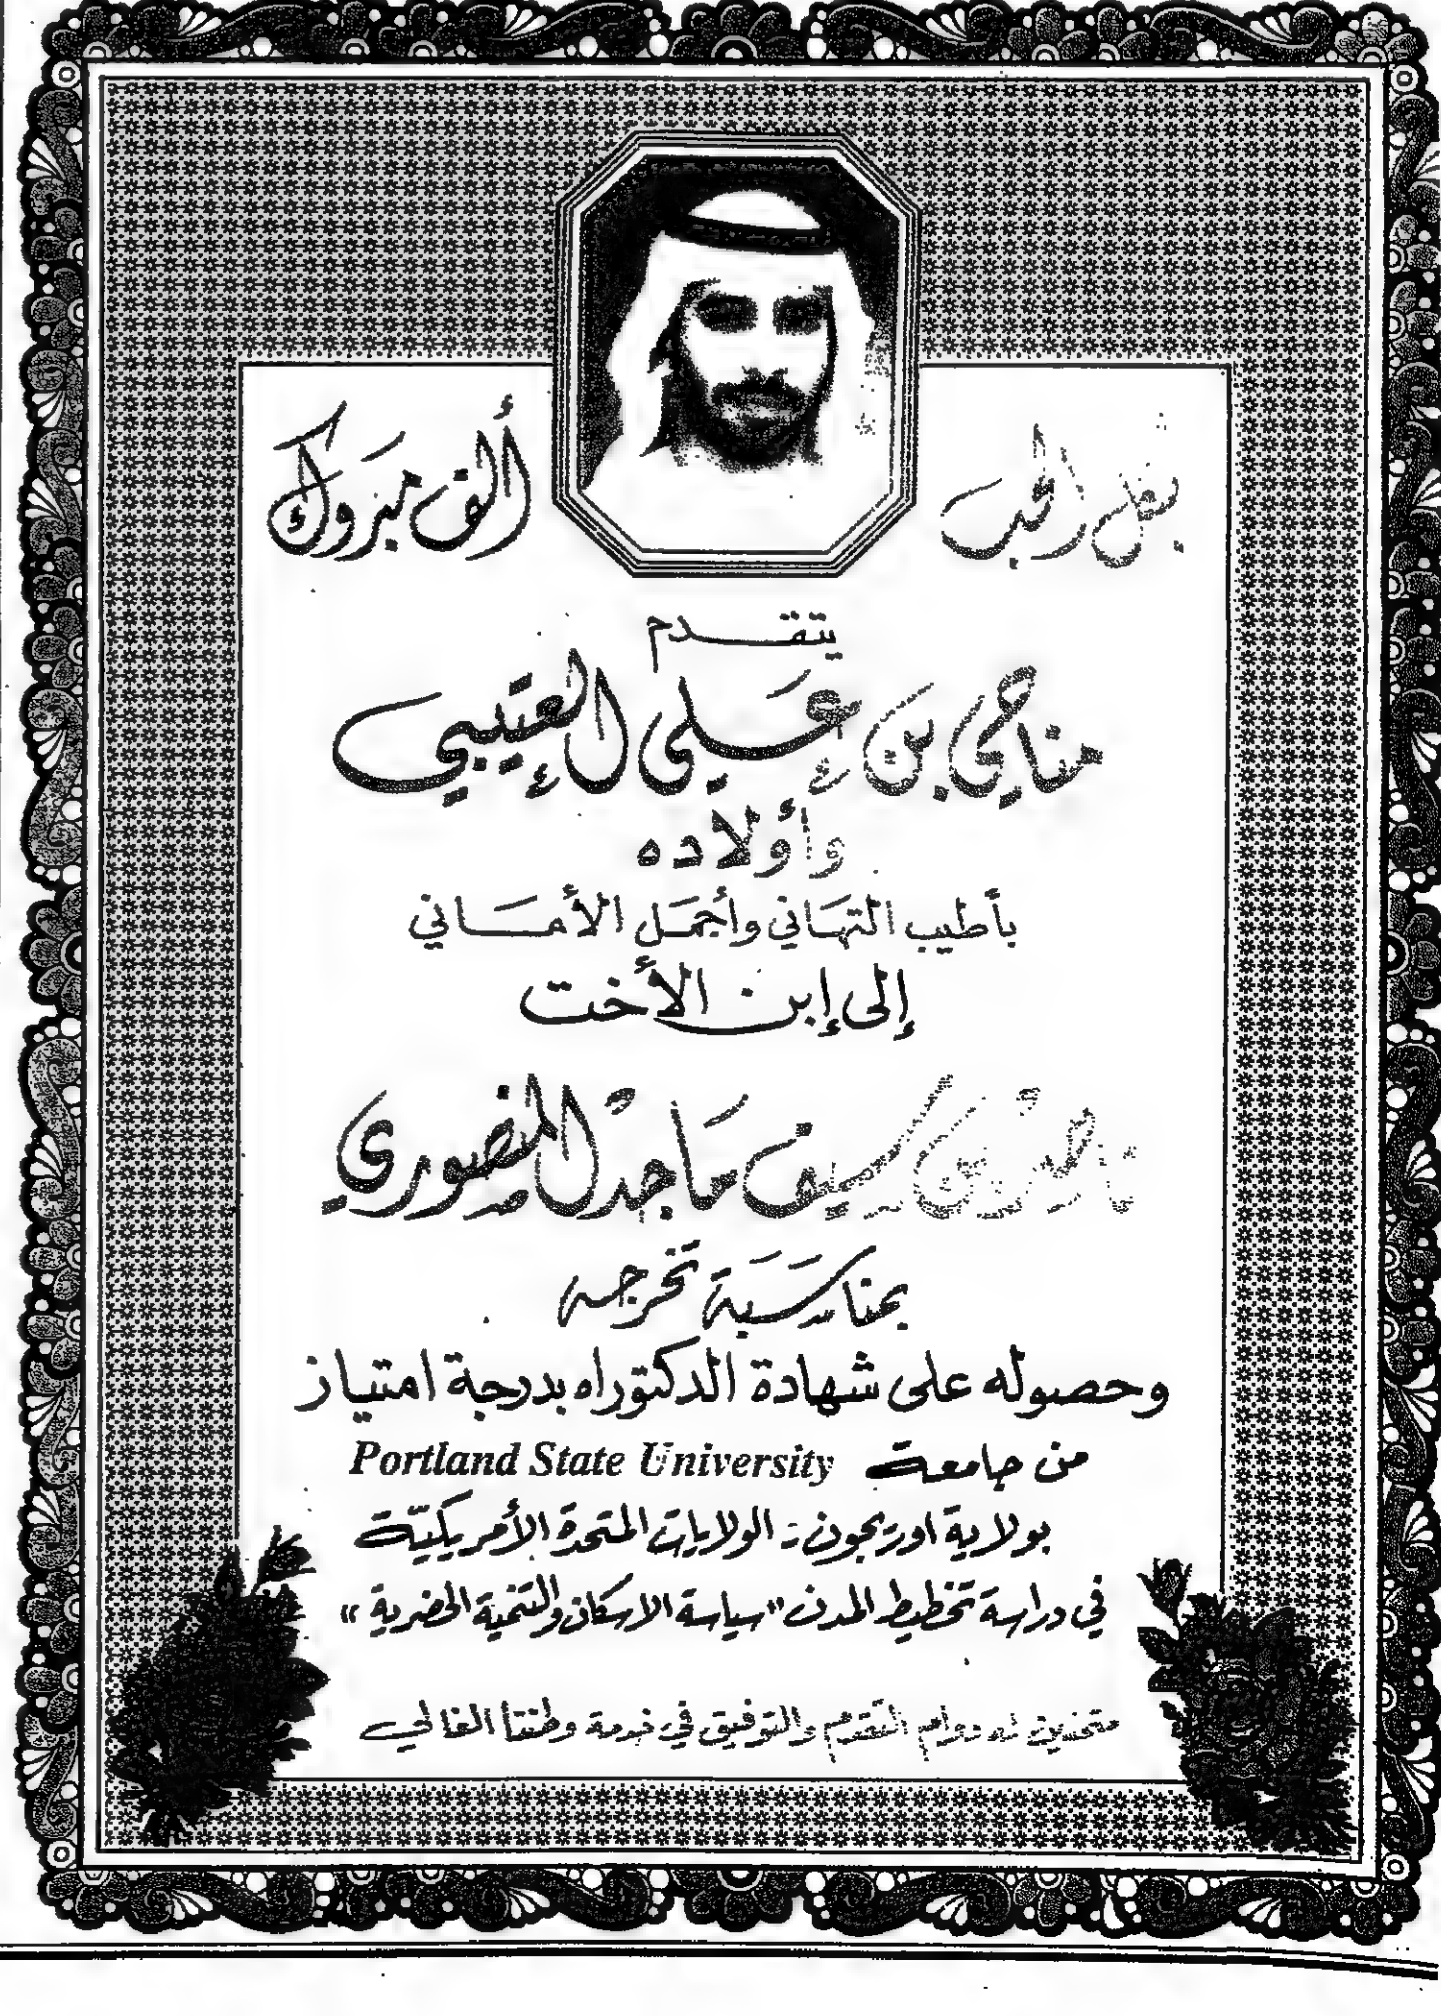 بكل الحب
ألف مبروك
يتقدم
مناحي بن علي العتيبي
وأولاده
بأطيب التهاني وأجمل الأماني
إلى إبن الأخت
ناصر بن سيف ماجد المنصوري
بمناسبة تخرجه
وحصوله على شهادة الدكتوراه بدرجة امتياز
من جامعة Portland State University
بولاية اوريجون - الولايات المتحدة الأمريكية
في دراسة تخطيط المدن "سياسة الاسكان والتنمية الحضرية"
متمنين له دوام التقدم والتوفيق في خدمة وطننا الغالي